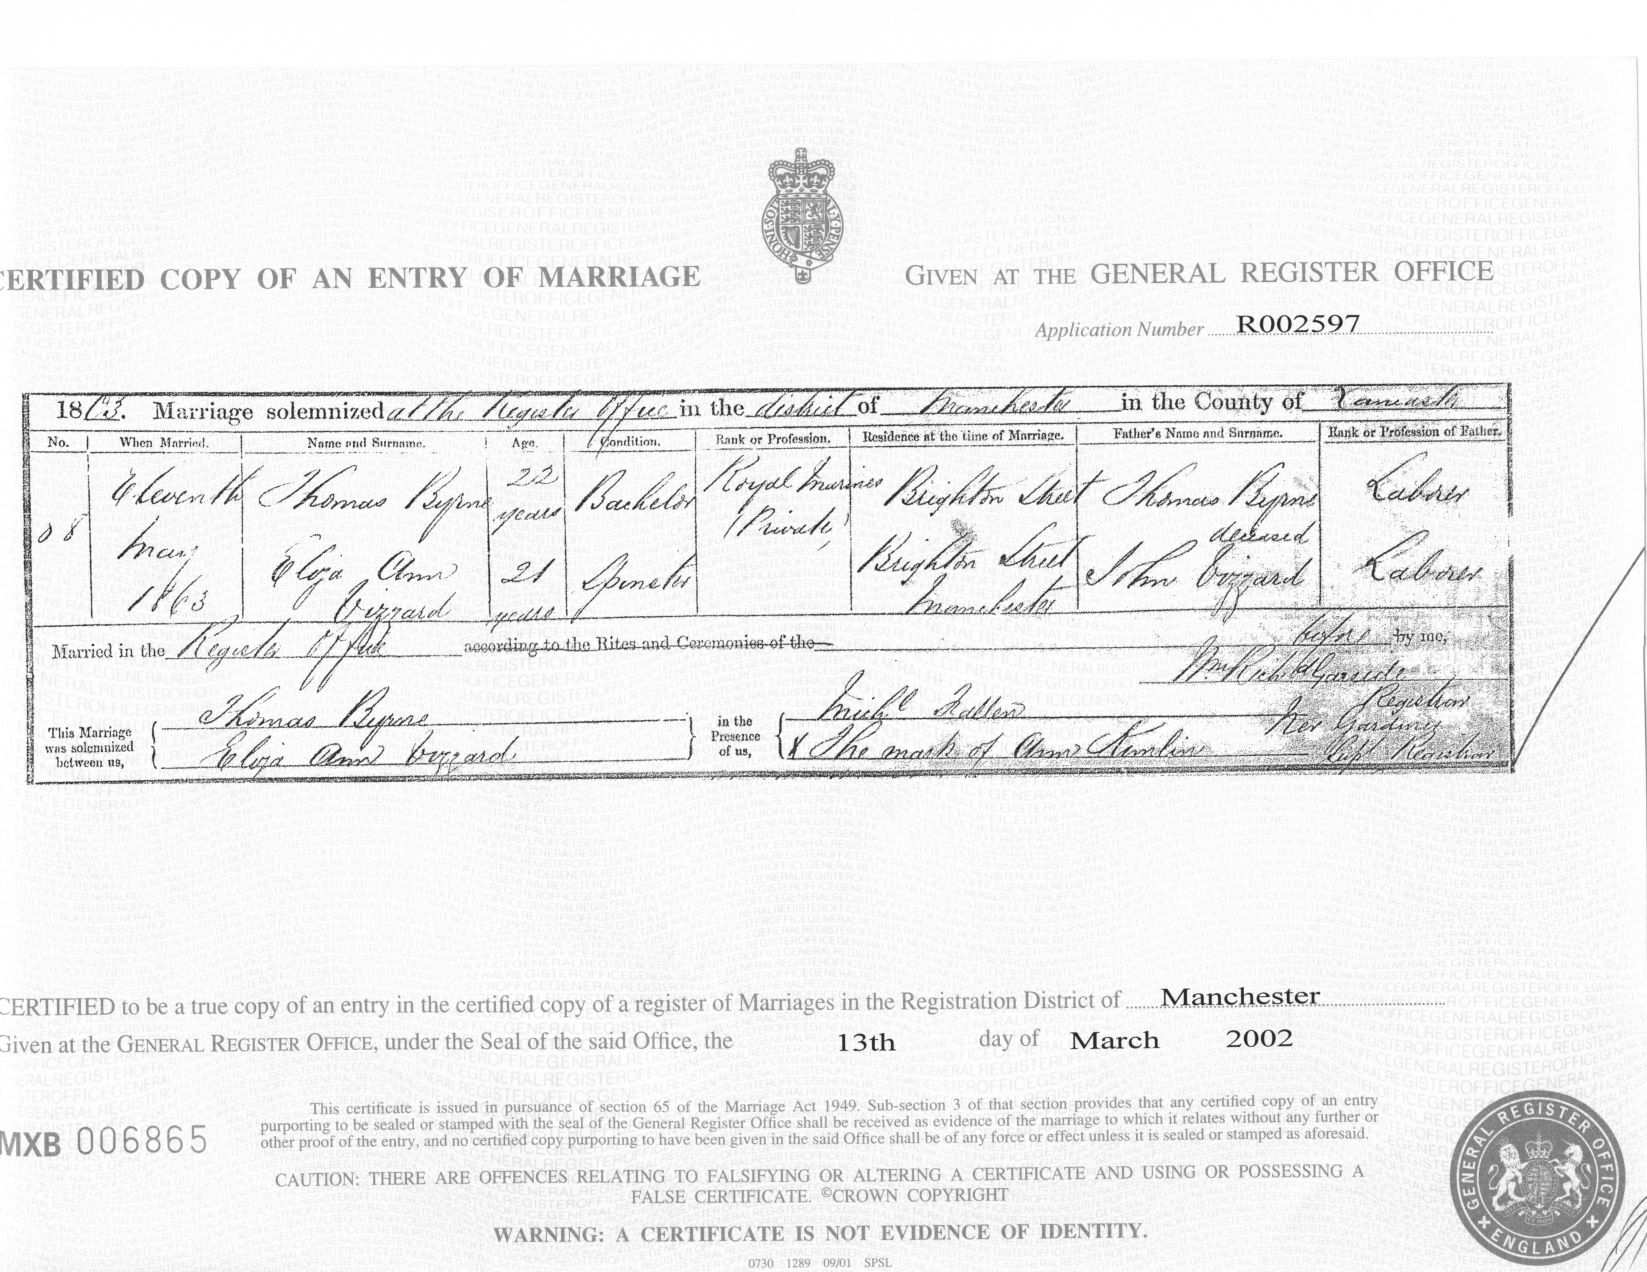 CERTIFIED COPY OF AN ENTRY OF MARRIAGE
GIVEN AT THE GENERAL REGISTER OFFICE
Application Number R002597
1863. Marriage solemnized at the Register Office in the district of Manchester in the County of Lancaster
No. When Married. Name and Surname. Age. Condition. Rank or Profession. Residence at the time of Marriage. Father's Name and Surname. Rank or Profession of Father.
08 Eleventh May 1863
Thomas Byrne 22 years Bachelor Royal Marines (Private) Brighton Street Thomas Byrne deceased Laborer
Eliza Ann Vizzard 21 years Spinster Brighton Street Manchester John Vizzard Laborer
Married in the Register Office according to the Rites and Ceremonies of the before by me,
Wm Richd Garside
Registrar
This Marriage was solemnized between us,
Thomas Byrne
Eliza Ann Vizzard
in the Presence of us,
Michl Fallen
X The mark of Ann Kimlin
Gardiner
Supt Registrar
CERTIFIED to be a true copy of an entry in the certified copy of a register of Marriages in the Registration District of Manchester
Given at the GENERAL REGISTER OFFICE, under the Seal of the said Office, the 13th day of March 2002
This certificate is issued in pursuance of section 65 of the Marriage Act 1949. Sub-section 3 of that section provides that any certified copy of an entry
purporting to be sealed or stamped with the seal of the General Register Office shall be received as evidence of the marriage to which it relates without any further or
other proof of the entry, and no certified copy purporting to have been given in the said Office shall be of any force or effect unless it is sealed or stamped as aforesaid.
MXB 006865
CAUTION: THERE ARE OFFENCES RELATING TO FALSIFYING OR ALTERING A CERTIFICATE AND USING OR POSSESSING A
FALSE CERTIFICATE. ©CROWN COPYRIGHT
WARNING: A CERTIFICATE IS NOT EVIDENCE OF IDENTITY.
0730 1289 09/01 SPSL
GENERAL REGISTER OFFICE
ENGLAND